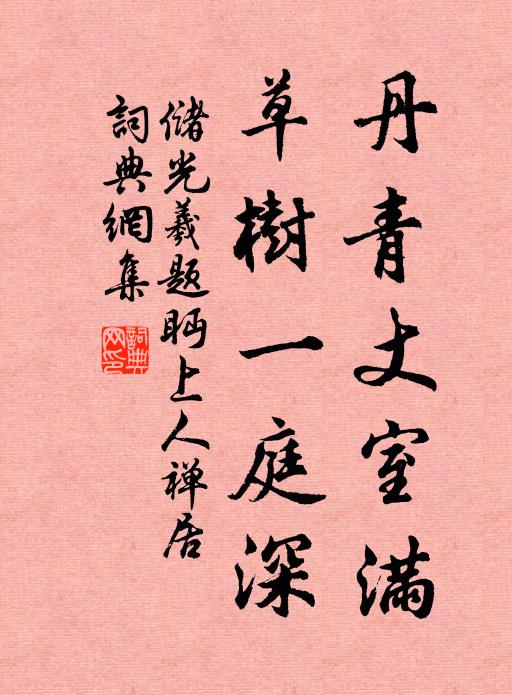 丹青丈室滿
草樹一庭深
儲光羲題眄上人禅居
詞典網集
詞典
网印